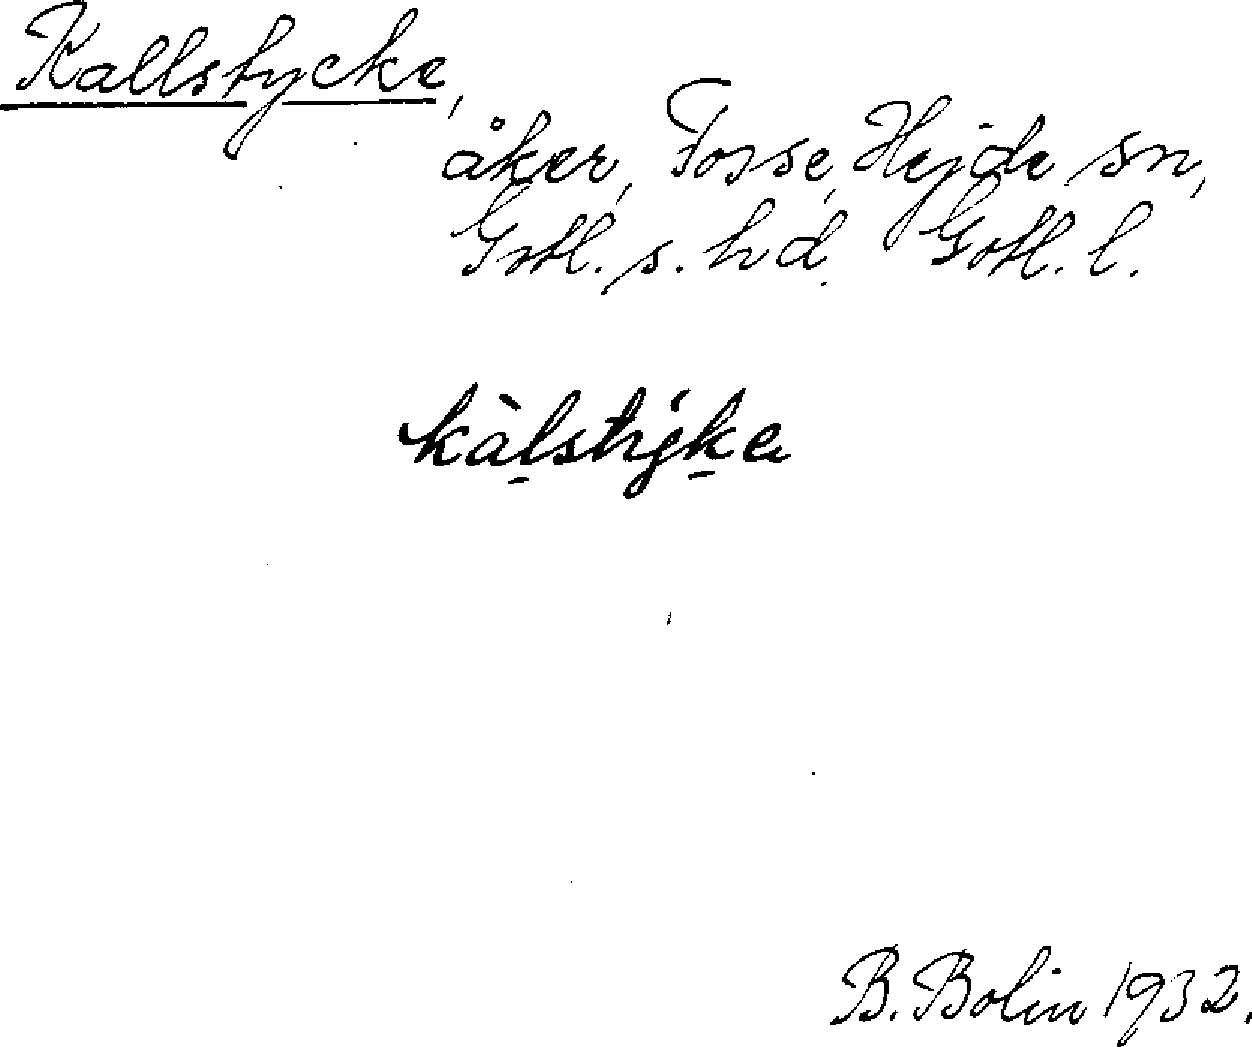 Kallstycke,
åker, Fosse, Hejde sn,
Gotl. s. hd. Gotl. l.
kàl̠stýk̠e
B. Bolin 1932.